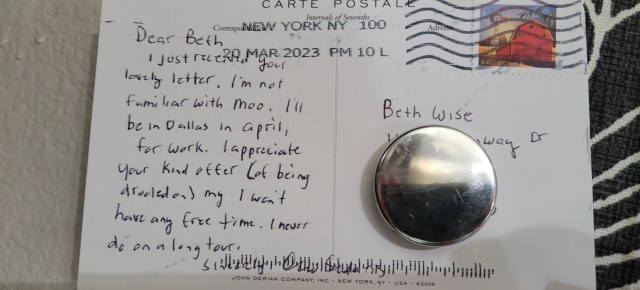 CARTE POSTALE
Intervals of Sevenths
NEW YORK NY 100
20 MAR 2023 PM 10 L
Dear Beth
I just received your
lovely letter. I'm not
familiar with Moo. I'll
be in Dallas in april,
for work. I appreciate
your kind offer (of being
drooled on) my I won't
have any free time. I never
do on a long tour.
Sincerely
Beth Wise
Dr
JOHN DERIAN COMPANY, INC - NEW YORK, NY - USA -